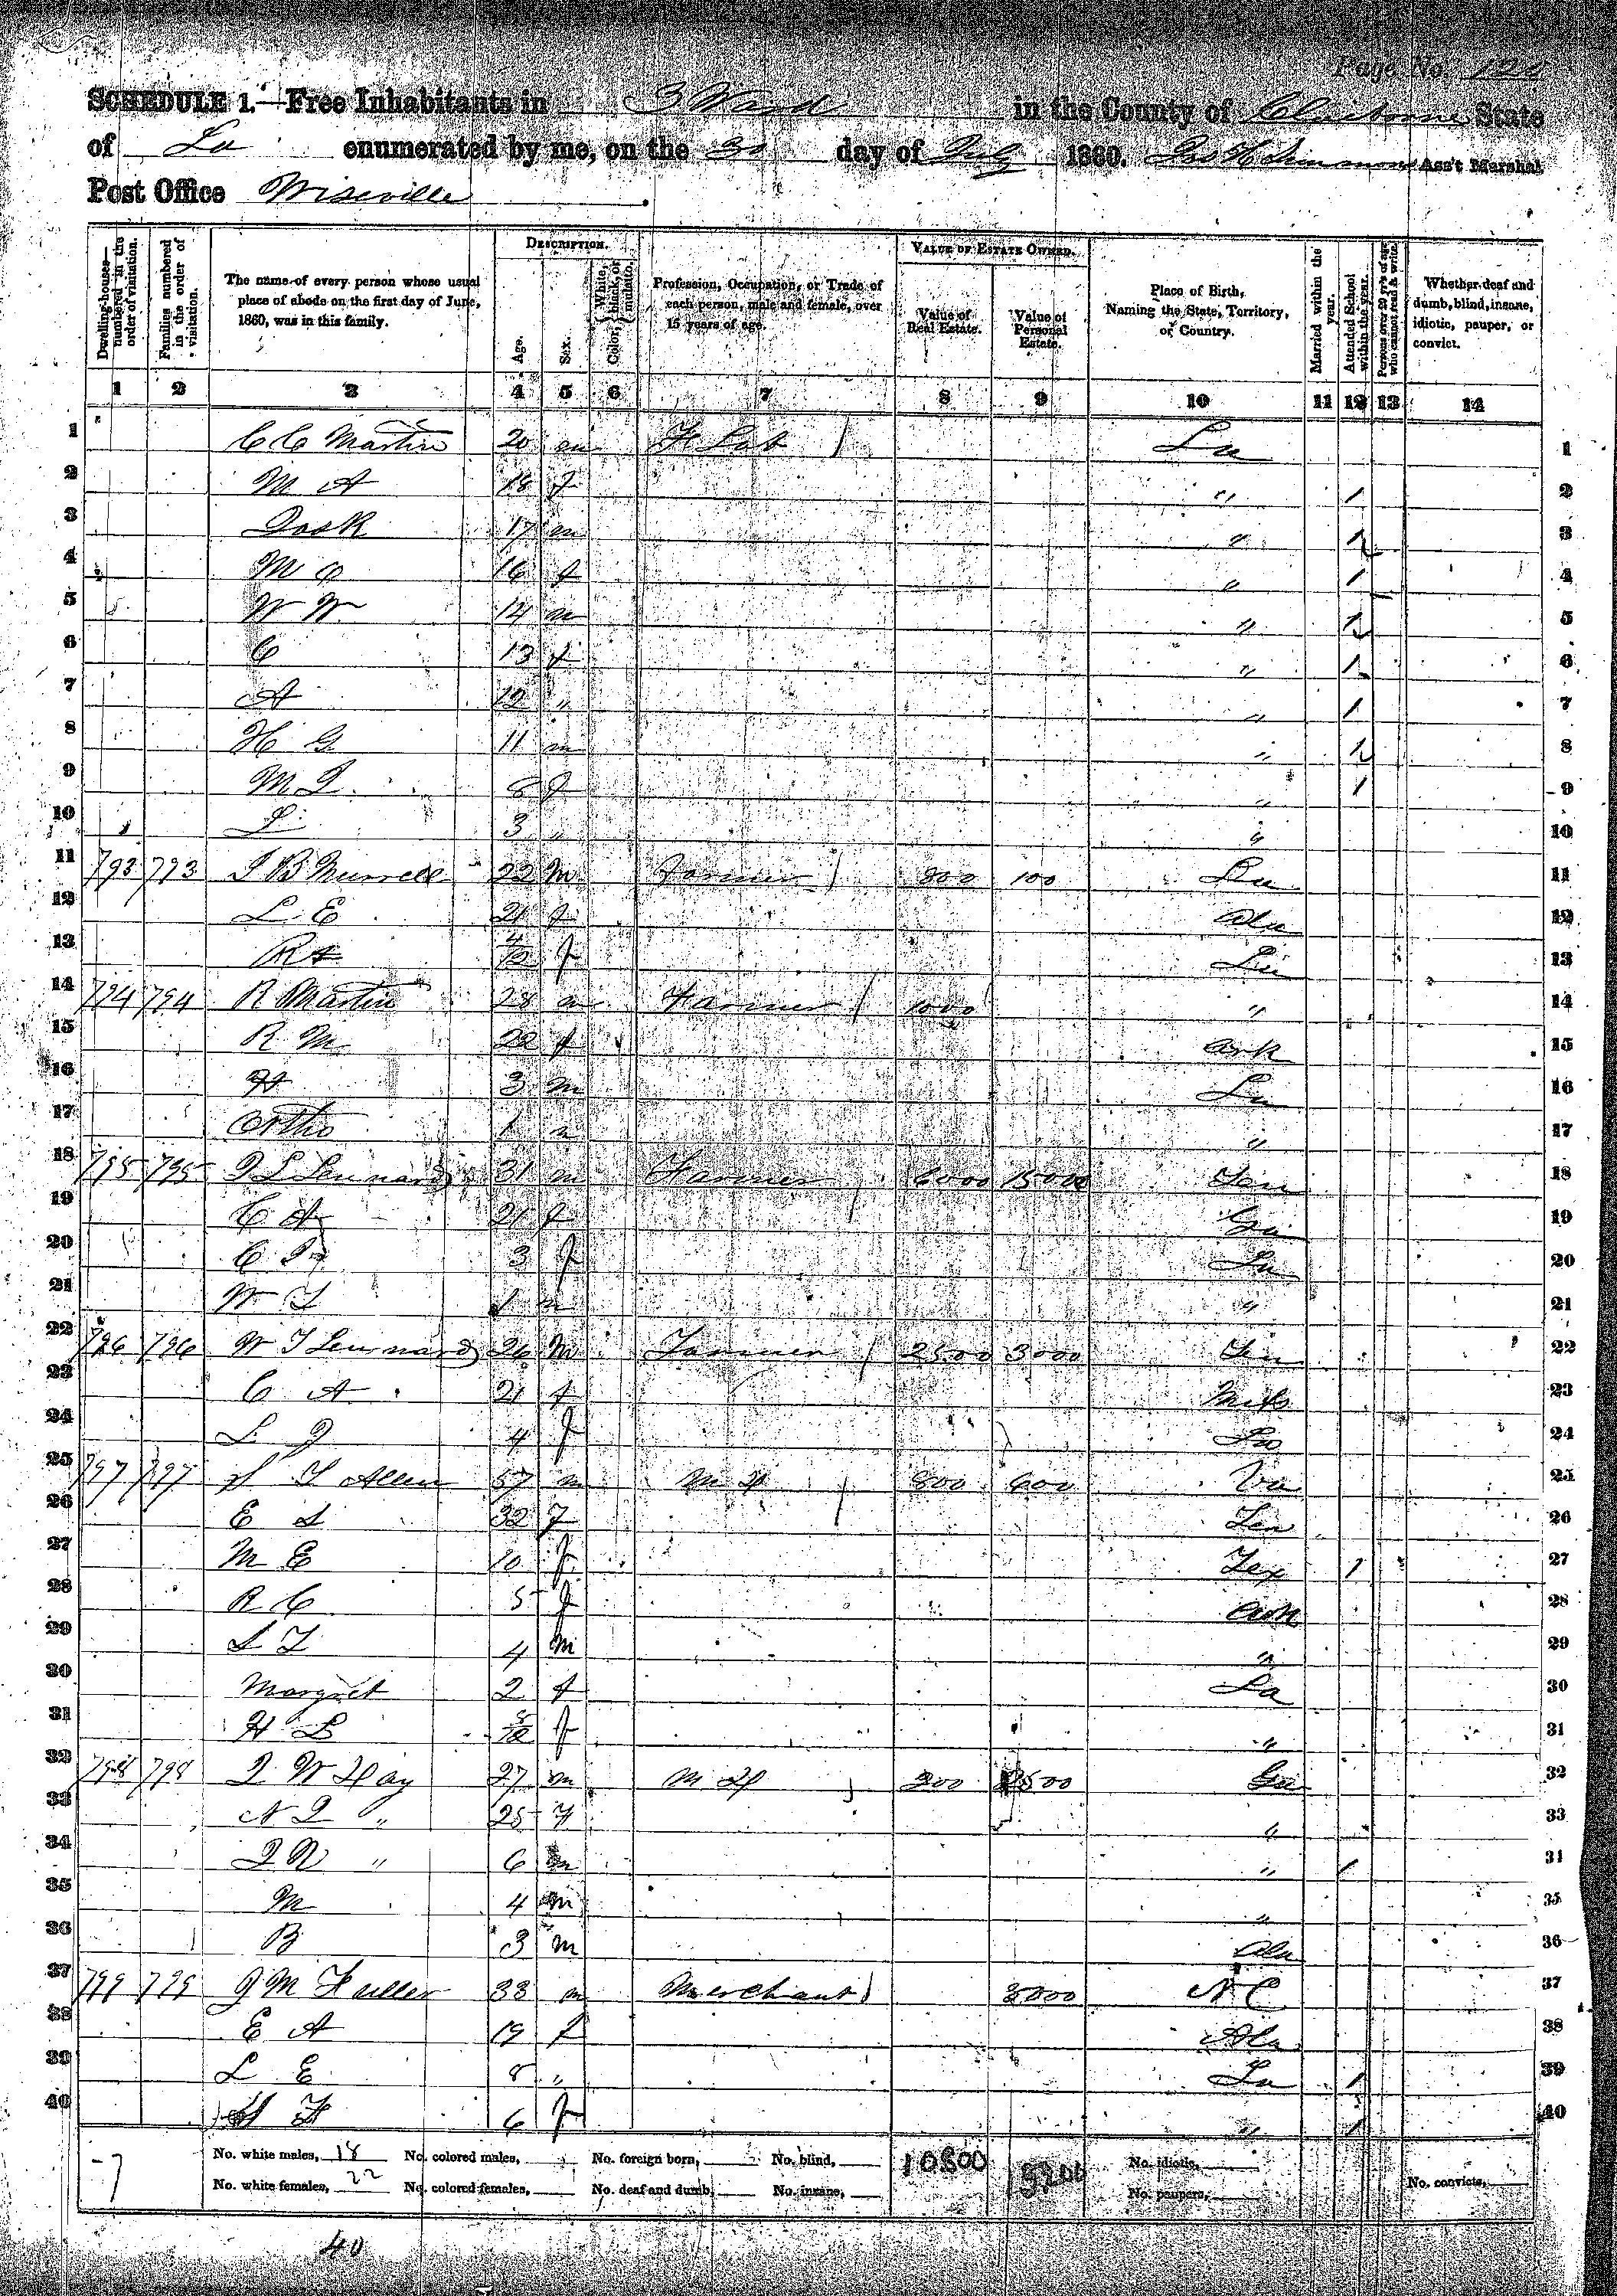 Page No. 120
SCHEDULE 1.—Free Inhabitants in 3 Ward in the County of Claiborne State
of La enumerated by me, on the 30 day of July 1860. Ass't Marshal.
Post Office Wiseville
DESCRIPTION. VALUE OF ESTATE OWNED.
Dwelling-houses—numbered in the order of visitation. Families numbered in the order of visitation. The name of every person whose usual place of abode on the first day of June, 1860, was in this family. Age. Sex. Color, White, black, or mulatto. Profession, Occupation, or Trade of each person, male and female, over 15 years of age. Value of Real Estate. Value of Personal Estate. Place of Birth, Naming the State, Territory, or Country. Married within the year. Attended School within the year. Persons over 20 y'rs of age who cannot read & write. Whether deaf and dumb, blind, insane, idiotic, pauper, or convict.
1 2 3 4 5 6 7 8 9 10 11 12 13 14
1 C C Martin 20 m F Lab La 1
2 M A 18 f " / 2
3 17 m " / 3
4 M 16 f " / 4
5 W W 14 m " / 5
6 C 13 f " / 6
7 A 12 " " / 7
8 H G 11 m " / 8
9 M J 8 f " / 9
10 L 3 " " 10
11 793 793 Murrell 22 M Farmer 800 100 La 11
12 L E 21 f Ala 12
13 4/12 f La 13
14 794 794 R Martin 28 m Farmer 1000 " 14
15 R M 22 f Ark 15
16 3 m La 16
17 Ortho 1 m " 17
18 795 795 31 m Farmer 6000 15000 Ten 18
19 C A 21 f Ga 19
20 C 3 f La 20
21 W T 1 m " 21
22 796 796 W T 26 M Farmer 2500 3000 Ten 22
23 C A 21 f Miss 23
24 L J 4 f La 24
25 797 797 S T Allen 57 m M D 800 600 Va 25
26 E S 32 f Ten 26
27 M E 10 f Tex / 27
28 R C 5 f Ark 28
29 S T 4 m " 29
30 Margret 2 f La 30
31 H L 8/12 f " 31
32 798 798 J W Hay 27 m M D 200 Ga 32
33 N J " 25 f " 33
34 J W " 6 m " / 34
35 M 4 m " 35
36 B 3 m Ala 36
37 799 799 J M Fuller 33 m Merchant 8000 N C 37
38 E A 19 f Ala 38
39 L E 8 " La / 39
40 6 f " / 40
No. white males, 18 No. colored males, No. foreign born, No. blind, 10800 No. idiotic,
No. white females, 22 No. colored females, No. deaf and dumb, No. insane, No. paupers, No. convicts,
40